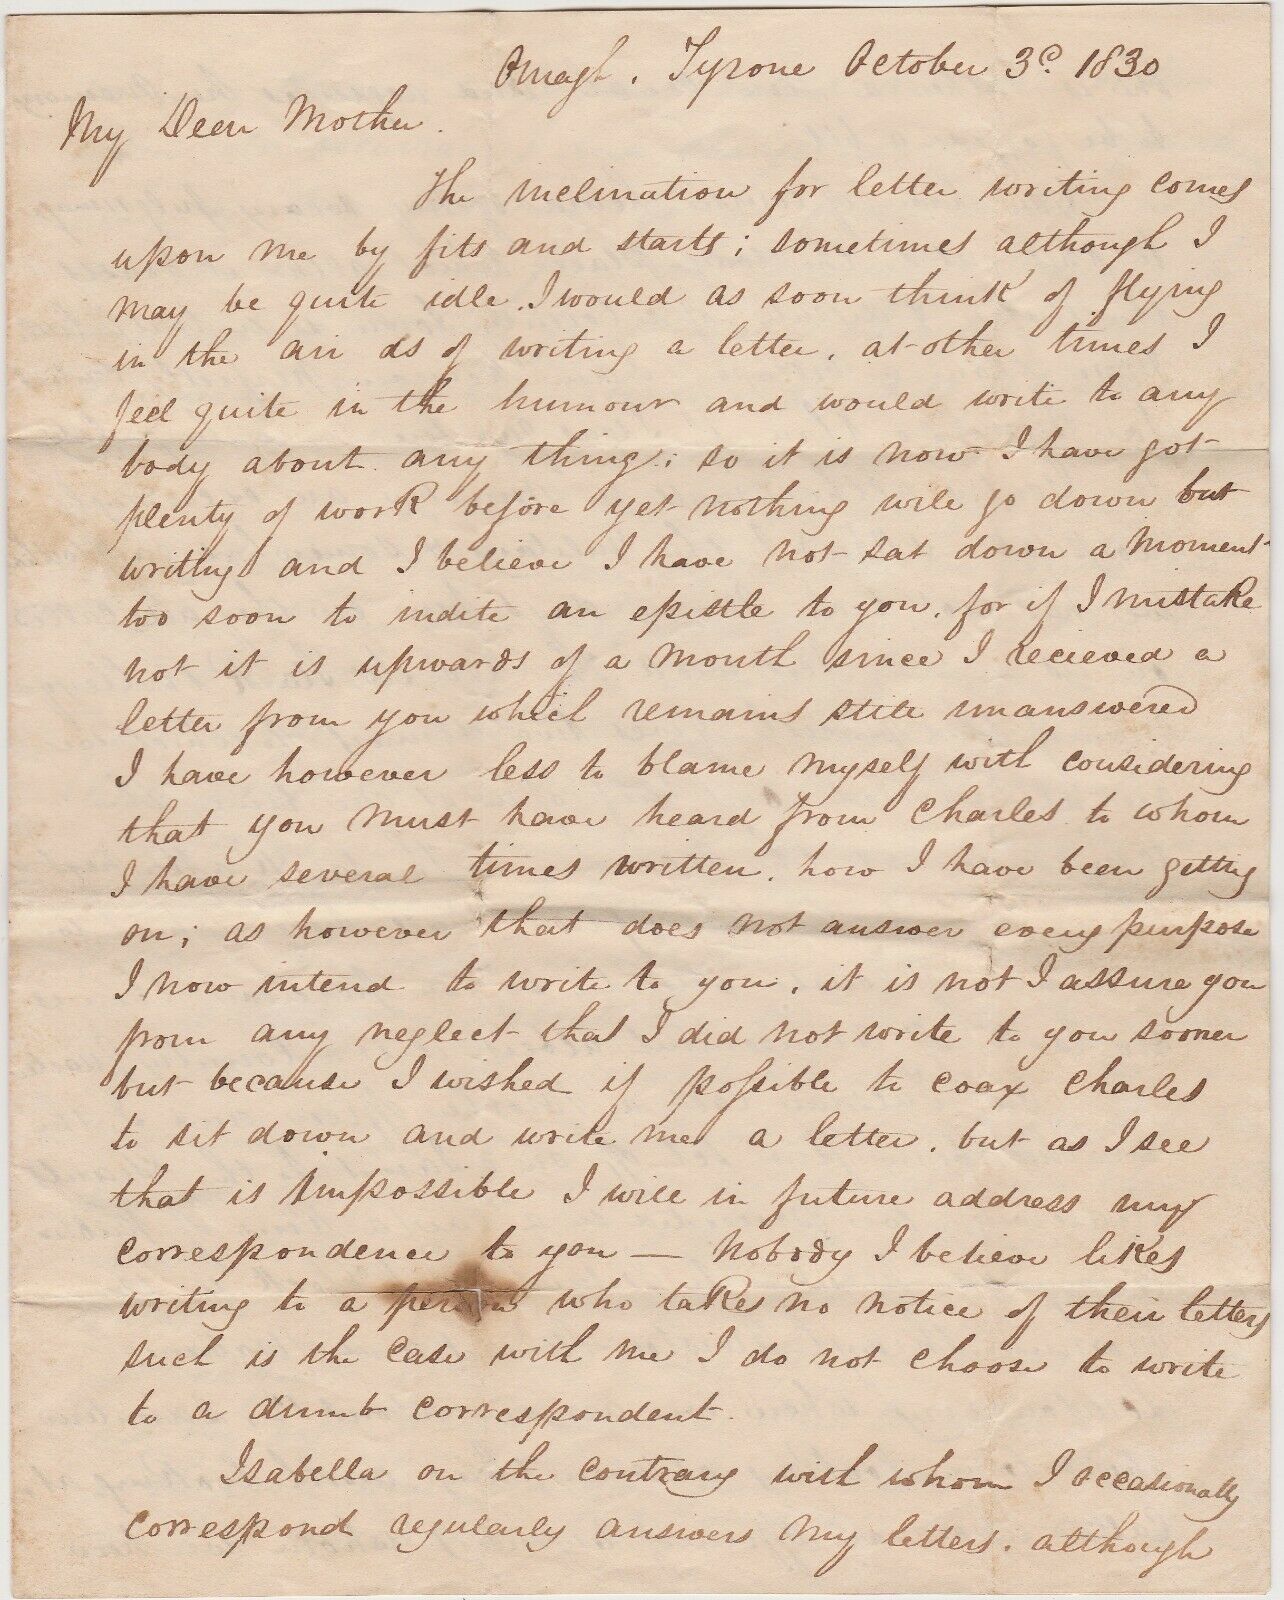 Omagh, Tyrone October 3d. 1830
My Dear Mother.
The inclination for letter writing comes
upon me by fits and starts; sometimes although I
may be quite idle. I would as soon think of flying
in the air as of writing a letter. at other times I
feel quite in the humour and would write to any
body about any thing; so it is now I have got
plenty of work before yet nothing will go down but
writing and I believe I have not sat down a moment
too soon to indite an epistle to you. for if I mistake
not it is upwards of a month since I recieved a
letter from you which remains still unanswered
I have however less to blame myself with considering
that you must have heard from Charles to whom
I have several times written. how I have been getting
on; as however that does not answer every purpose
I now intend to write to you. it is not I assure you
from any neglect that I did not write to you sooner
but because I wished if possible to coax Charles
to sit down and write me a letter. but as I see
that is impossible I will in future address my
correspondence to you — nobody I believe likes
writing to a person who takes no notice of their letters
such is the case with me I do not choose to write
to a dumb correspondent.
Isabella on the contrary with whom I occasionally
correspond regularly answers my letters. although